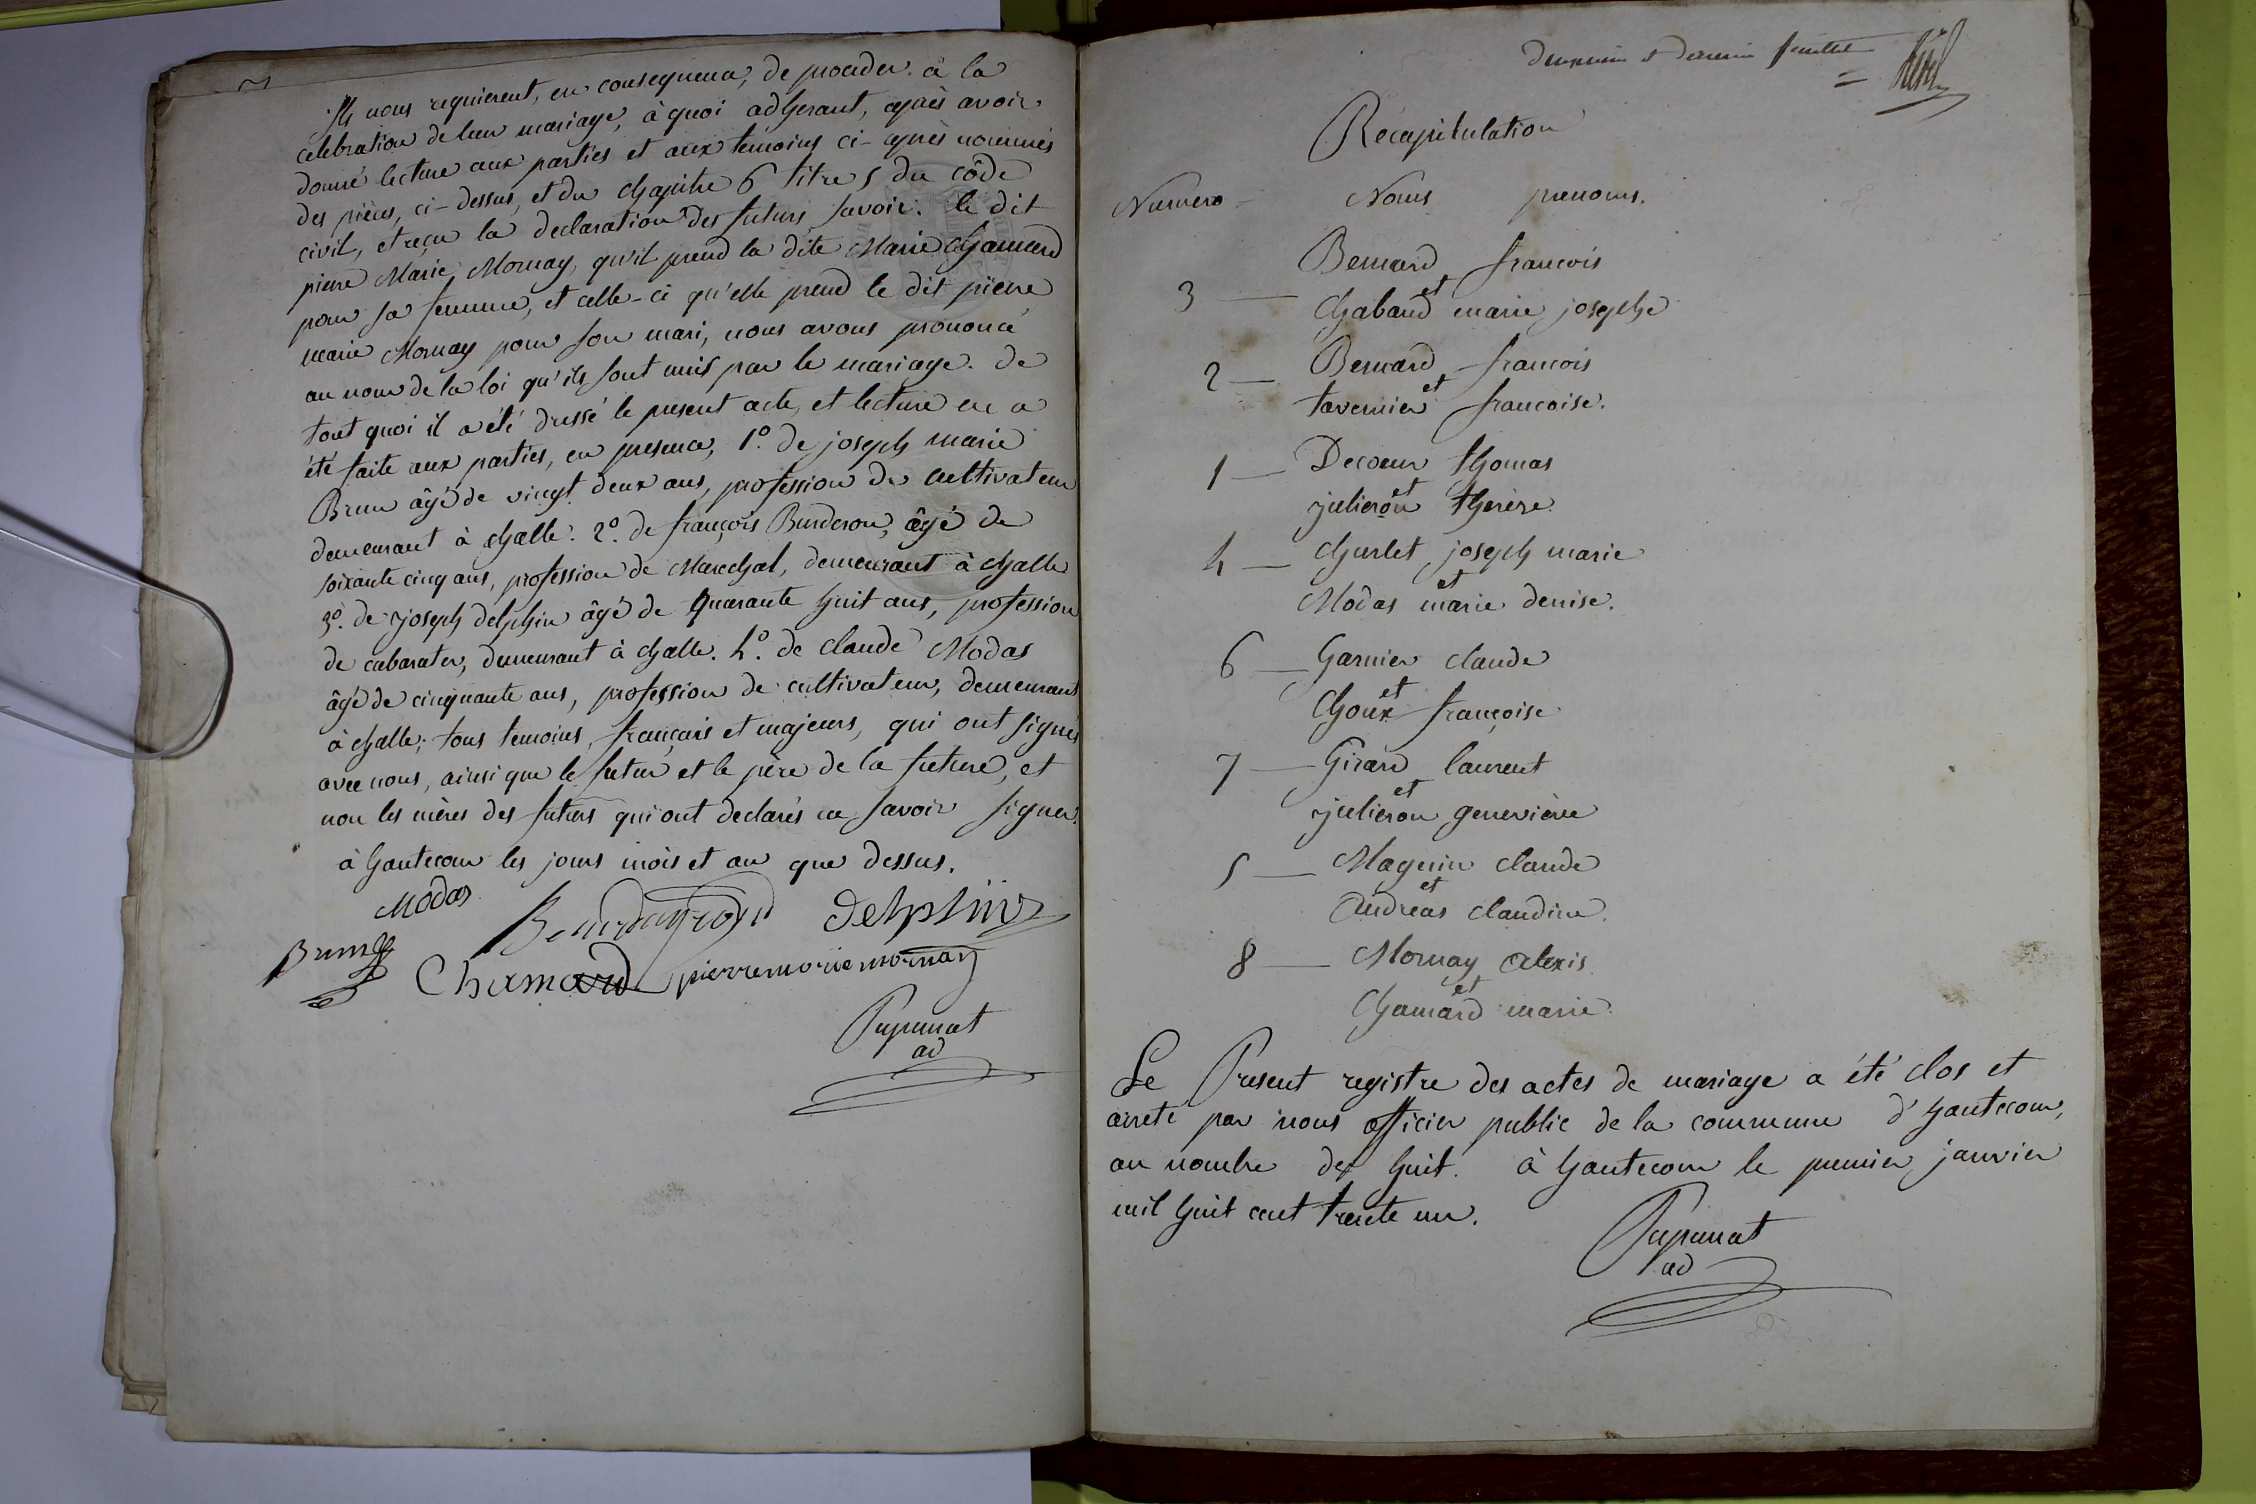 Ils nous requierent, en consequence, de proceder à la
celebration de leur mariage, à quoi adherant, après avoir
donné lecture aux parties et aux temoins ci-après nommés
des pièces, ci-dessus, et du chapitre 6 titre 5 du côde
civil, et reçu la declaration des futurs savoir: le dit
pierre Marie Mornay, qu'il prend la dite Marie Chamard
pour sa femme, et celle-ci qu'elle prend le dit pierre
marie Mornay pour son mari, nous avons prononcé
au nom de la loi qu'ils sont unis par le mariage. de
tout quoi il a été dressé le present acte, et lecture en a
été faite aux parties, en presence, 1º. de joseph marie
Brun âgé de vingt deux ans, profession de cultivateur
demeurant à challe. 2º. de françois Burderon, âgé de
soixante cinq ans, profession de Marechal, demeurant à challe
3º. de joseph delphin âgé de quarante huit ans, profession
de cabarater, demeurant à challe. 4º. de claude Modas
âgé de cinquante ans, profession de cultivateur, demeurant
à challe; tous temoins, français et majeurs, qui ont signés
avec nous, ainsi que le futur et le père de la future, et
non les mères des futurs qui ont declarés ne savoir signer.
à hautecour les jours mois et an que dessus.
Modas
Brun Delphin
Chamard pierre marie mornay
Papunat
ad
deuxmie et dernier feuillet
Récapitulation
Numero Noms prenoms.
Bernard francois
3 — et
Chabaud marie josephe
2 — Bernard francois
et
tavernier francoise.
1 — Decoeur thomas
et
julieron therèse
4 — Churlet joseph marie
et
Modas marie denise.
6 — Garnier claude
et
Choux françoise
7 — Girard laurent
et
julieron geneviève
5 — Magnin claude
et
Andreas claudine.
8 — Mornay alexis
et
Chamard marie
Le Present registre des actes de mariage a été clos et
arreté par nous officier public de la commune d'hautecour,
au nombre de huit. à hautecour le premier janvier
mil huit cent trente un.
Papunat
ad